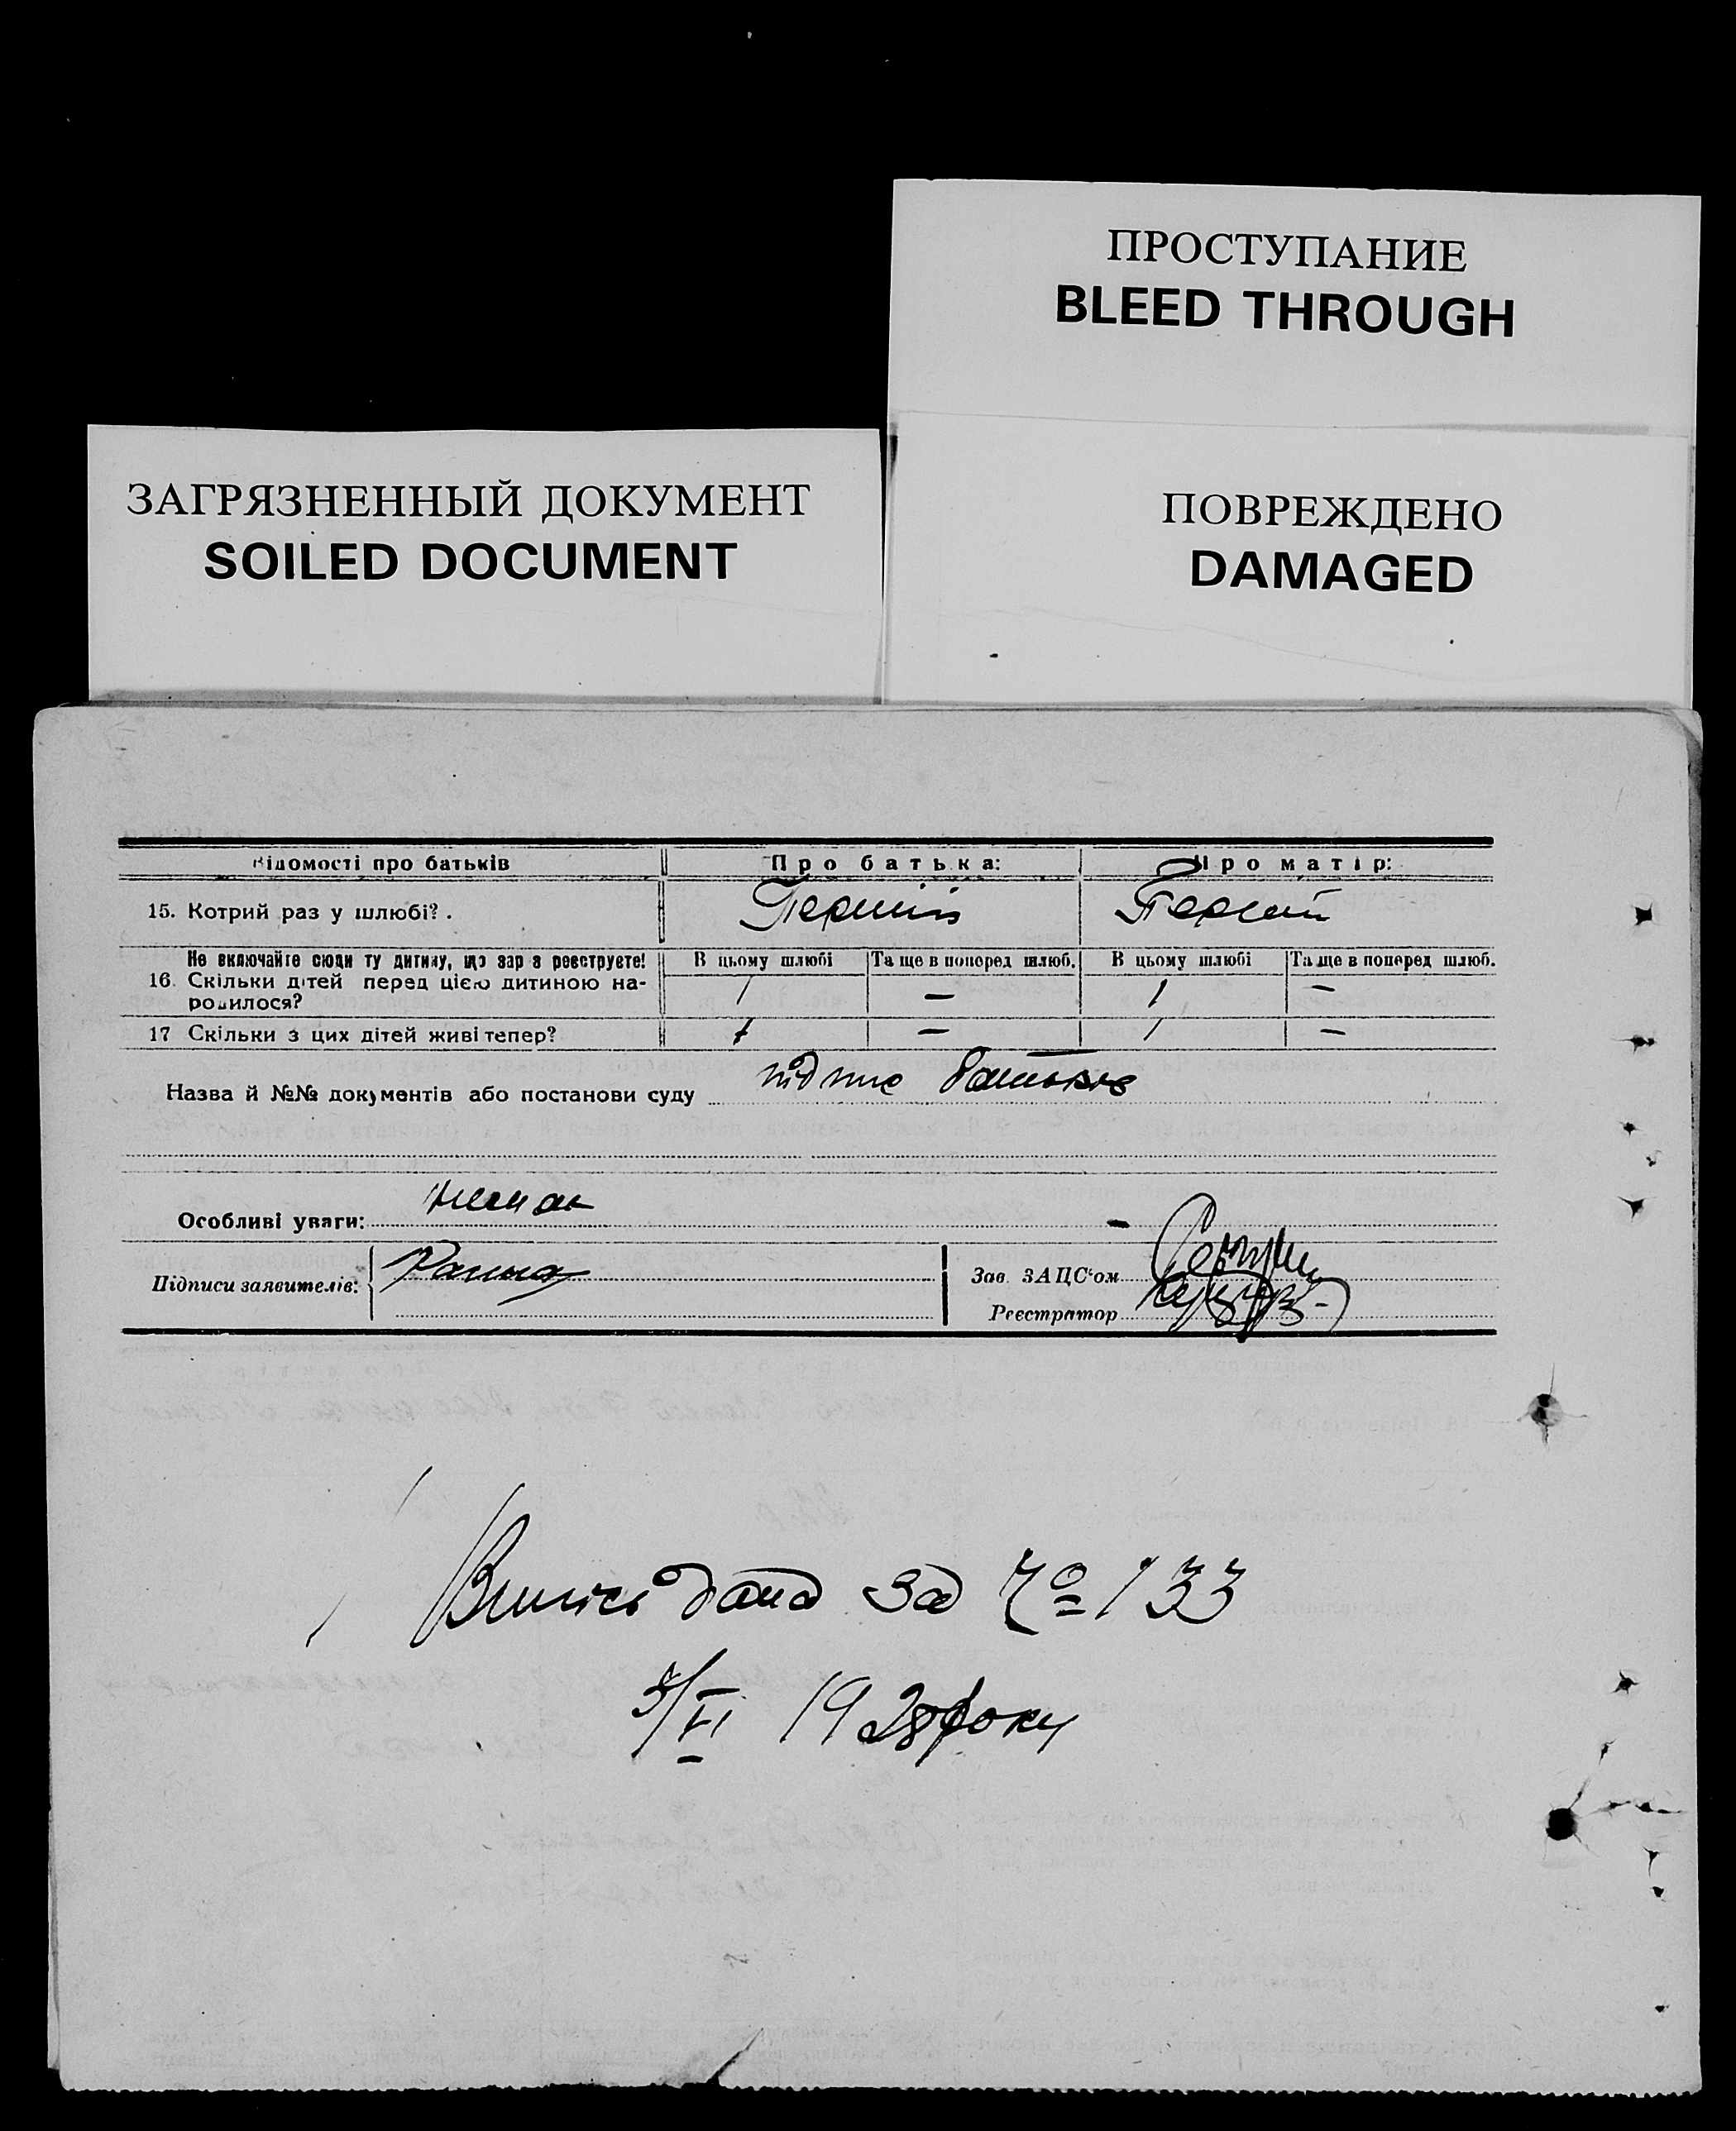 ПРОСТУПАНИЕ
BLEED THROUGH
ЗАГРЯЗНЕННЫЙ ДОКУМЕНТ
SOILED DOCUMENT
ПОВРЕЖДЕНО
DAMAGED
Відомості про батьків Про батька: Про матір:
15. Котрий раз у шлюбі?. Перший Перший
Не включайте сюди ту дитину, що зараз реєструєте! В цьому шлюбі Та ще в поперед шлюб. В цьому шлюбі Та ще в поперед шлюб.
16. Скільки дітей перед цією дитиною на-
родилося? 1 — 1 —
17 Скільки з цих дітей живі тепер? 1 — 1 —
Назва й №№ документів або постанови суду підпис батьків
Особливі уваги: немає —
Підписи заявителів:
Зав. ЗАЦС'ом
Реєстратор
Випись дана за № 133
5/VI 1928 року